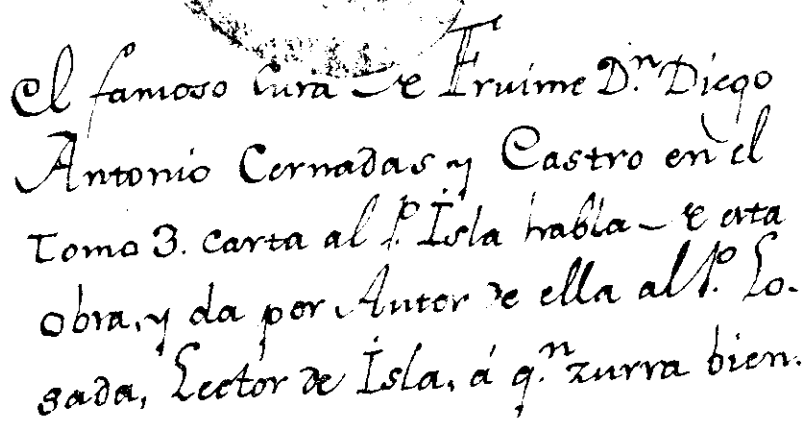 El famoso Cura de Fruime D.n Diego
Antonio Cernadas y Castro en el
Tomo 3. carta al P. Isla habla de esta
obra, y da por Autor de ella al P. Lo-
sada, Lector de Isla, á q.n zurra bien.